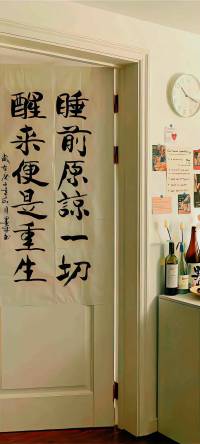 睡前原諒一切
醒来便是重生